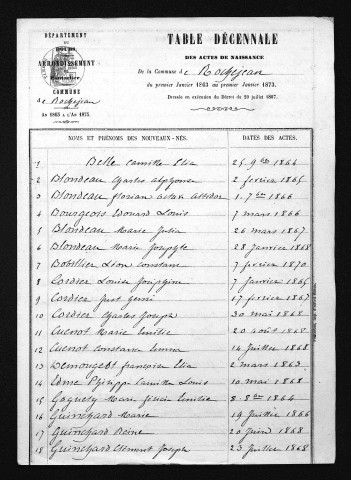 DÉPARTEMENT
du
Doubs
ARRONDISSEMENT
Pontarlier
COMMUNE
de Rochejean
AN 1863 A L'AN 1873.
TABLE DÉCENNALE
DES ACTES DE NAISSANCE
De la Commune de Rochejean
du premier Janvier 1863 au premier Janvier 1873.
Dressée en exécution du Décret du 20 juillet 1807.
NOMS ET PRÉNOMS DES NOUVEAUX-NÉS. DATES DES ACTES.
1 Belle Camille Elia 25 9bre 1864
2 Blondeau Charles Alphonse 2 fevrier 1865
3 Blondeau florian 1. 7bre 1866
4 Bourgeois Edouard Louis 7 mars 1866
5 Blondeau Marie Julia 26 mars 1867
6 Blondeau Marie Josephte 28 Janvier 1868
7 Bobillier Léon Constant 7 fevrier 1870
8 Cordier Louise Joséphine 7 Janvier 1865
9 Cordier Just henri 17 fevrier 1867
10 Cordier Charles Joseph 30 mai 1868
11 Cuenot Marie Emilie 20 août 1868
12 Cuenot Constance Emma 14 Juillet 1868
13 Demougeot francoise Elia 2 mars 1863
14 Edme Philippe Camille Louis 10 mai 1868
15 Marie félicie Emélie 8 8bre 1864
16 Guinchard Marie 19 Juillet 1866
17 Guinchard Reine 20 Juin 1868
18 Guinchard Clément Joseph 23 Juillet 1868